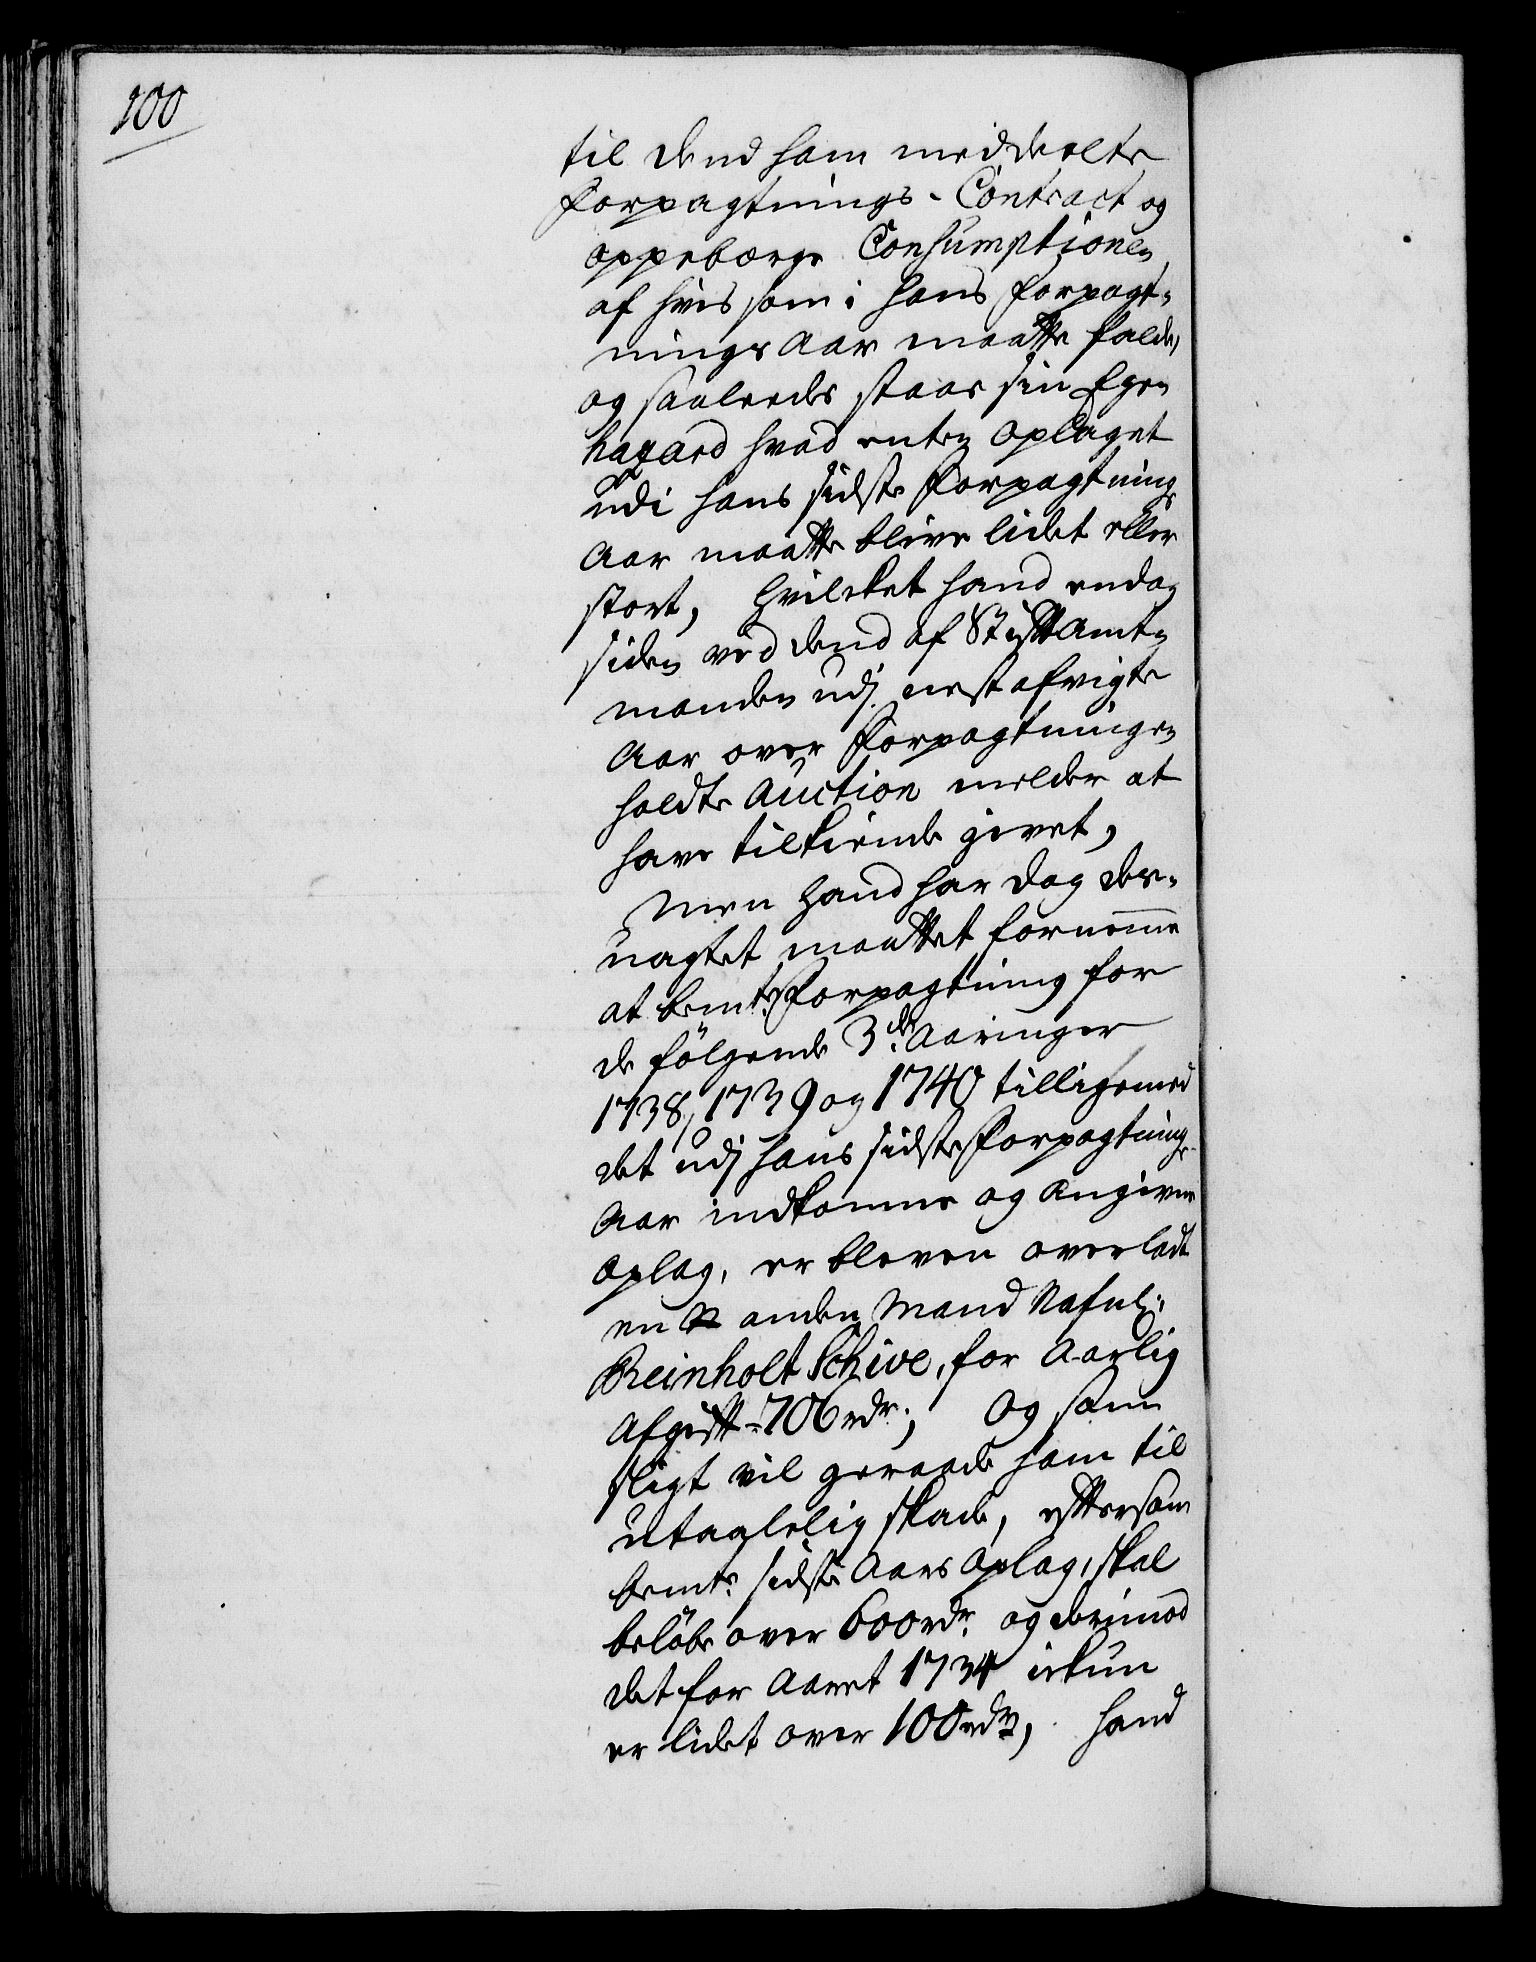 100
til dend ham meddeelte
Forpagtnings-Contract og
oppebærge Consumptionen
af hvis som i hans Forpagt-
nings Aar maatte falde,
og saaleedes staae sin Egen
hazard hvad enten Oplaget
udi hans sidste Forpagtnings
Aar maatte blive lidet eller
stort, hvilcket hand endog
siden ved dend af Stiftamt-
manden udj nest afvigte
Aar over Forpagtningen
holdte Auction melder at
have tilkiende givet,
Men hand har dog des-
uagtet maattet fornemme
at bemte Forpagtning for
de følgende 3de Aaringer
1738, 1739 og 1740 tilligemed
det udj hans sidste Forpagtnings
Aar indkomne og Angivne
Oplag, er bleven overladt
en anden Mand Nafnl:
Reinholt Schive, for Aarlig
Afgift 706 rdr; Og som
sligt vil geraade ham til
utaalelig skade, eftersom
bemte sidste Aars Oplag, skal
beløbe over 600 rdr og derimod
det for Aaret 1734 ickun
er lidet over 100 rdr, hand